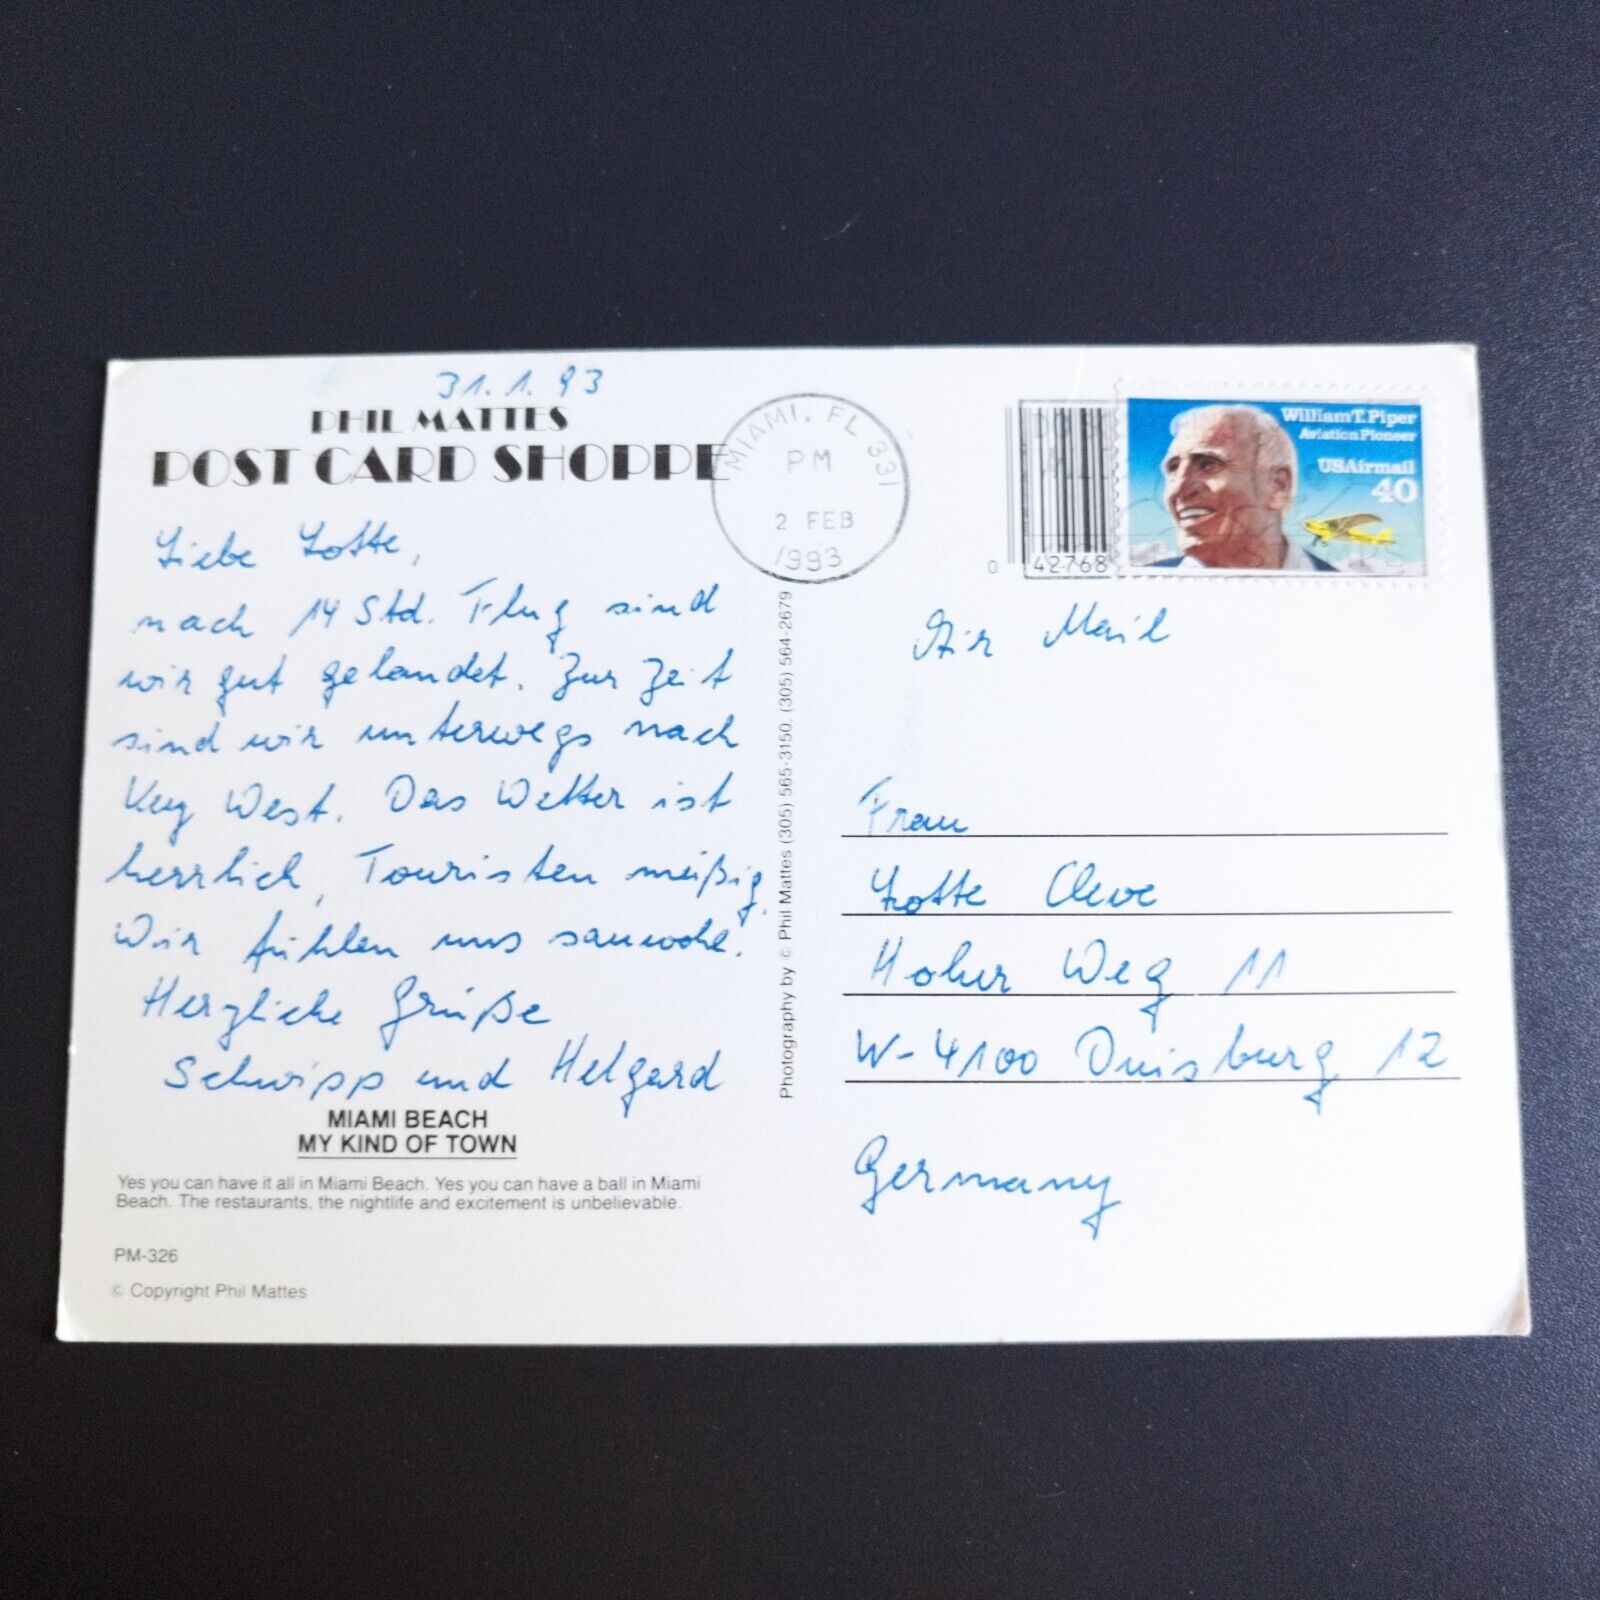 31.1.93
PHIL MATTES
POST CARD SHOPPE
Liebe Lotte,
nach 14 Std. Flug sind
wir gut gelandet. Zur Zeit
sind wir unterwegs nach
Key West. Das Wetter ist
herrlich, Touristen meißig.
Wir fühlen uns sauwohl.
Herzliche Grüße
Schwipp und Helgard
MIAMI BEACH
MY KIND OF TOWN
Yes you can have it all in Miami Beach. Yes you can have a ball in Miami
Beach. The restaurants, the nightlife and excitement is unbelievable.
PM-326
© Copyright Phil Mattes
Photography by © Phil Mattes (305) 565-3150. (305) 564-2679
MIAMI, FL 331
PM
2 FEB
1993
0 42768
William T. Piper
Aviation Pioneer
USAirmail
40
Air Mail
Frau
Lotte Cleve
Hoher Weg 11
W-4100 Duisburg 12
Germany